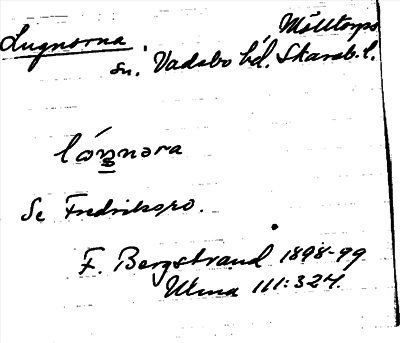 Lugnorna, Mölltorps
sn. Vadsbo hd. Skarab. l.
lóŋnəra
Se Fredriksro.
F. Bergstrand 1898-99
Ulma 111:324.